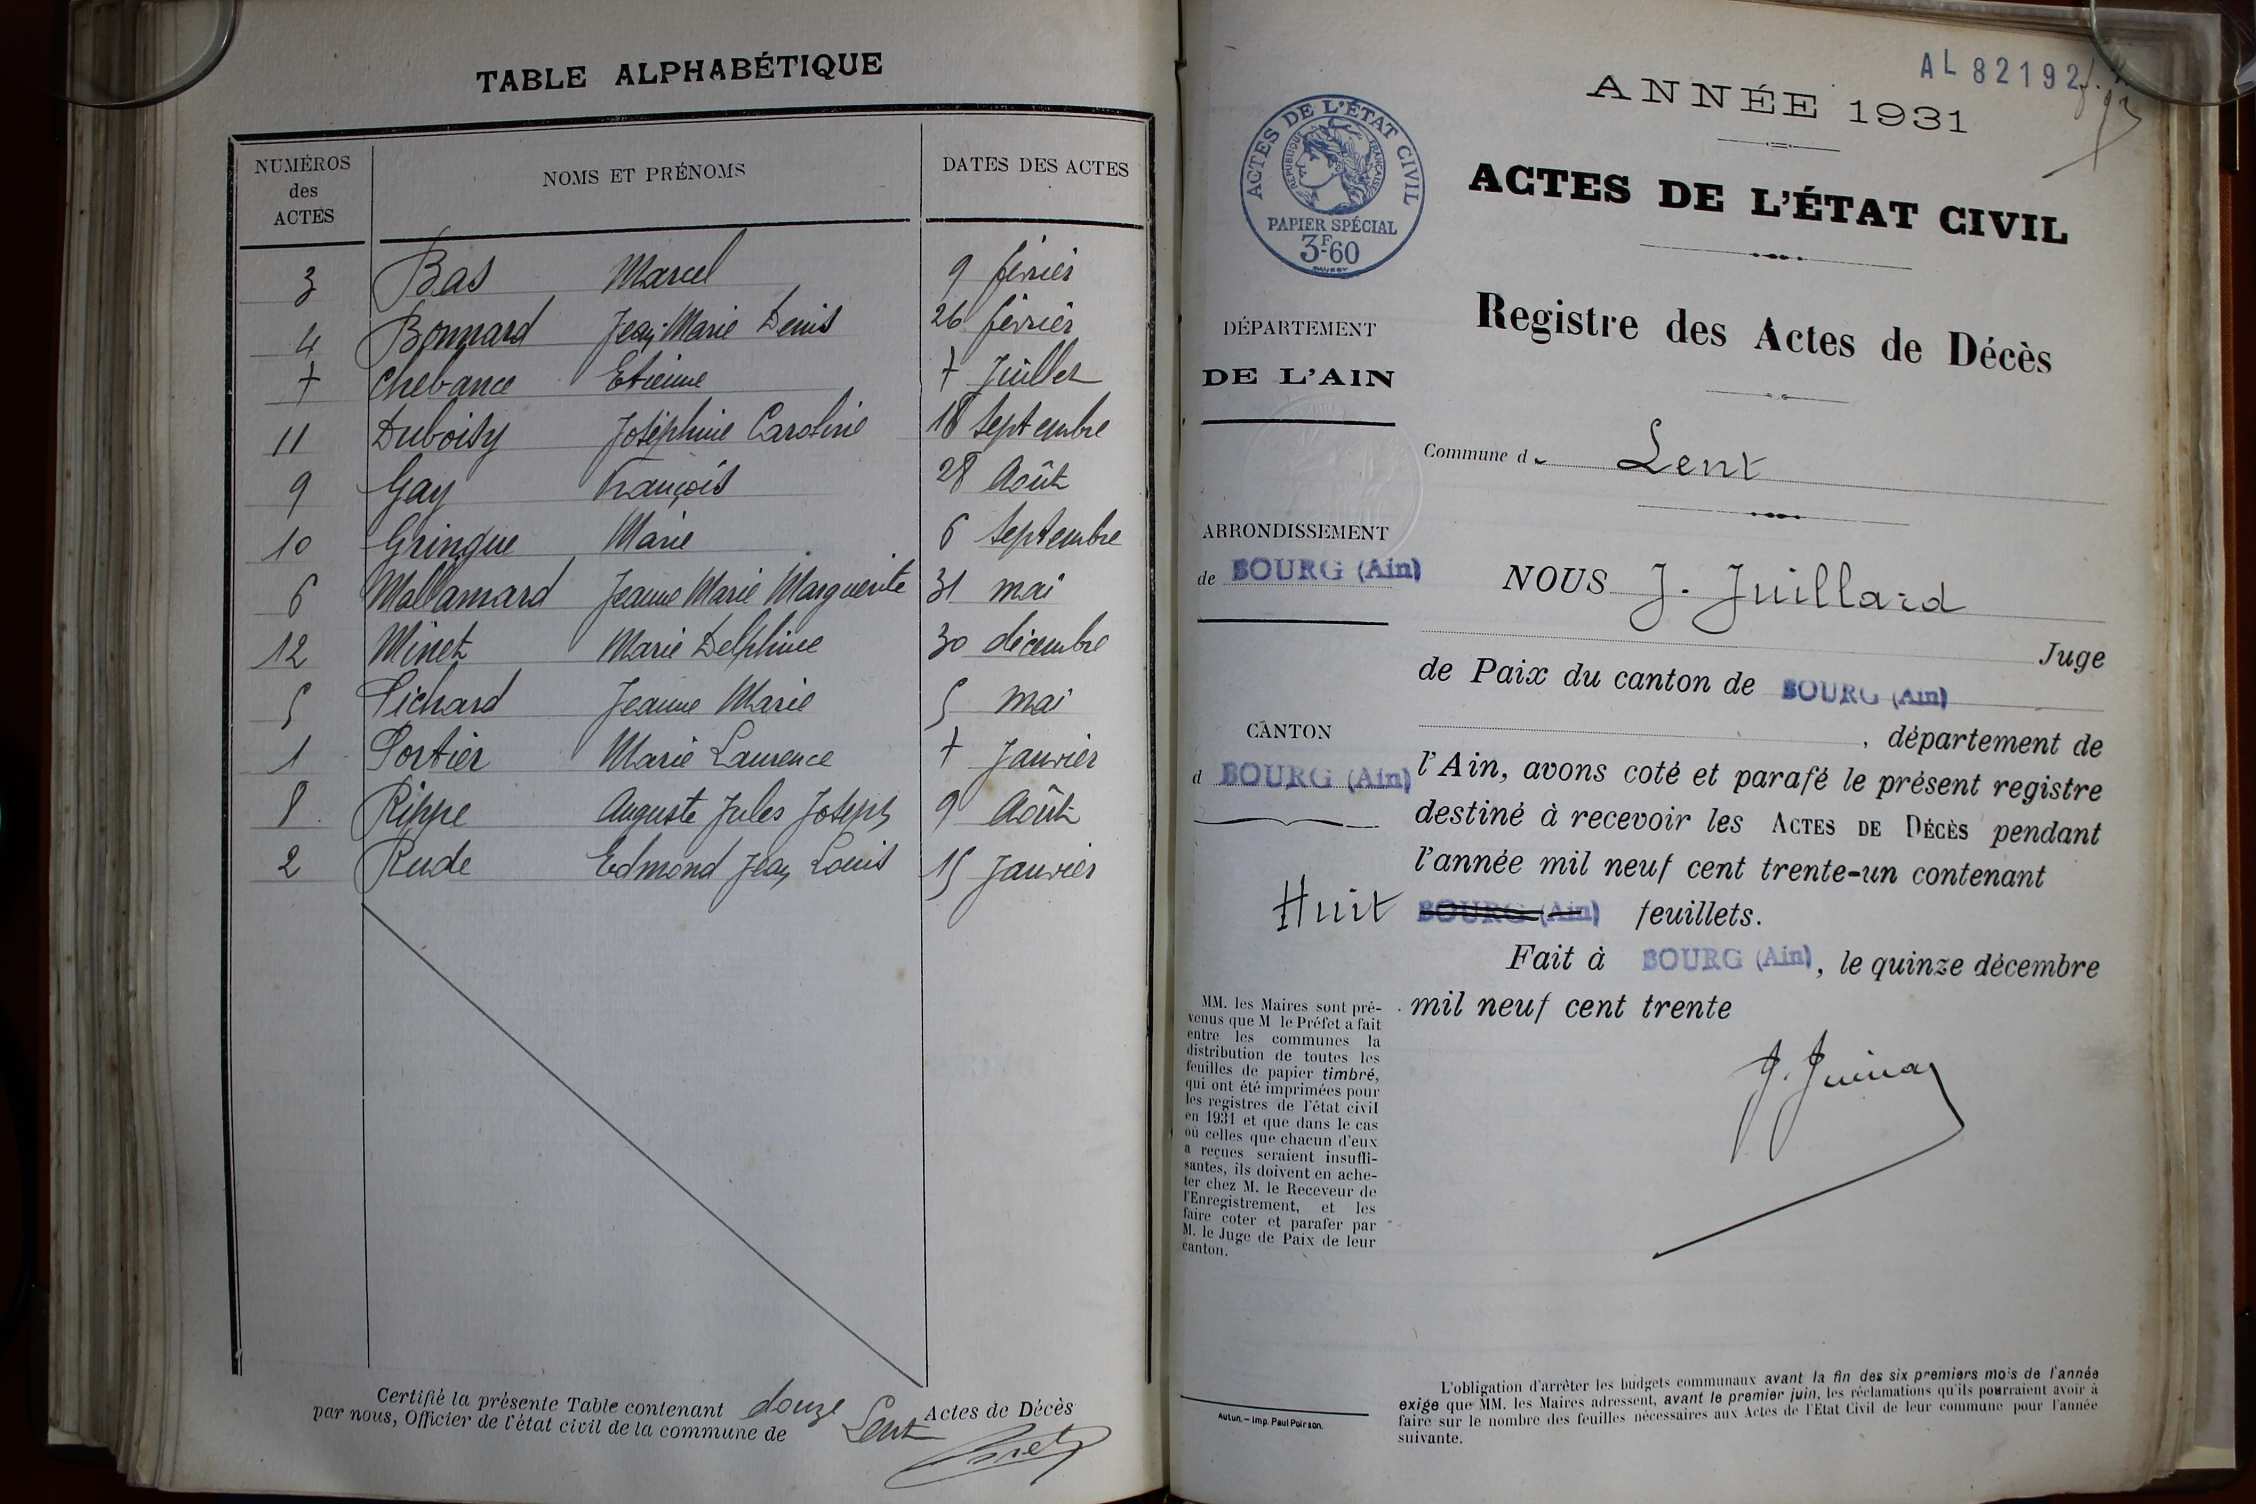 TABLE ALPHABÉTIQUE
NUMÉROS des ACTES NOMS ET PRÉNOMS DATES DES ACTES
3 Bas Marcel 9 février
4 Bonnard Jean-Marie Denis 26 février
7 Chebance Etienne 7 Juillet
11 Duboisy Joséphine Caroline 18 Septembre
9 Gay François 28 Août
10 Gringue Marie 6 Septembre
6 Mallamard Jeanne Marie Marguerite 31 mai
12 Minet Marie Delphine 30 décembre
5 Pichard Jeanne Marie 5 Mai
1 Portier Marie Laurence 7 Janvier
8 Rippe Auguste Jules Joseph 9 Août
2 Rude Edmond Jean Louis 15 Janvier
Certifié la présente Table contenant douze Actes de Décès
par nous, Officier de l'état civil de la commune de Lent
AL 82192
ANNÉE 1931
ACTES DE L'ÉTAT CIVIL
RÉPUBLIQUE FRANÇAISE
PAPIER SPÉCIAL
3F-60
ACTES DE L'ÉTAT CIVIL
Registre des Actes de Décès
DÉPARTEMENT
DE L'AIN
Commune de Lent
ARRONDISSEMENT
de BOURG (Ain)
CANTON
d BOURG (Ain)
NOUS J. Juillard
Juge
de Paix du canton de BOURG (Ain)
, département de
l'Ain, avons coté et parafé le présent registre
destiné à recevoir les ACTES DE DÉCÈS pendant
l'année mil neuf cent trente-un contenant
Huit BOURG (Ain) feuillets.
Fait à BOURG (Ain), le quinze décembre
mil neuf cent trente
MM. les Maires sont pré-
venus que M le Préfet a fait
entre les communes la
distribution de toutes les
feuilles de papier timbré,
qui ont été imprimées pour
les registres de l'état civil
en 1931 et que dans le cas
où celles que chacun d'eux
a reçues seraient insuffi-
santes, ils doivent en ache-
ter chez M. le Receveur de
l'Enregistrement, et les
faire coter et parafer par
M. le Juge de Paix de leur
canton.
Autun. — Imp. Paul Poirson.
L'obligation d'arrêter les budgets communaux avant la fin des six premiers mois de l'année
exige que MM. les Maires adressent, avant le premier juin, les réclamations qu'ils pourraient avoir à
faire sur le nombre des feuilles nécessaires aux Actes de l'Etat Civil de leur commune pour l'année
suivante.